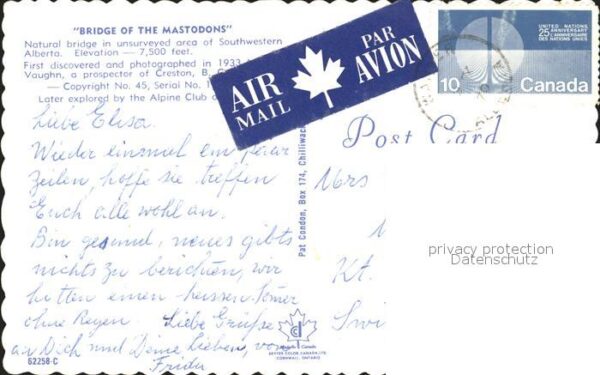 "BRIDGE OF THE MASTODONS"
Natural bridge in unsurveyed area of Southwestern
Alberta. Elevation — 7,500 feet.
First discovered and photographed in 1933
Vaughn, a prospector of Creston, B.
— Copyright No. 45, Serial No. 1
Later explored by the Alpine Club
AIR MAIL
PAR AVION
UNITED NATIONS
25 ANNIVERSARY
L'ANNIVERSAIRE
DES NATIONS UNIES
10 Canada
Post Card
Liebe Elisa.
Wieder einmal ein paar
Zeilen, hoffe sie treffen
Euch alle wohl an.
Bin gesund, neues gibts
nichts zu berichten, wir
hatten einen heissen Somer
ohne Regen. Liebe Grüsse
an Dich und Deine Lieben, von
Frida
Mrs
Kt.
Swi
Pat Condon, Box 174, Chilliwac
privacy protection
Datenschutz
Canada
DEXTER COLOR CANADA LTD
CORNWALL, ONTARIO
62258-C